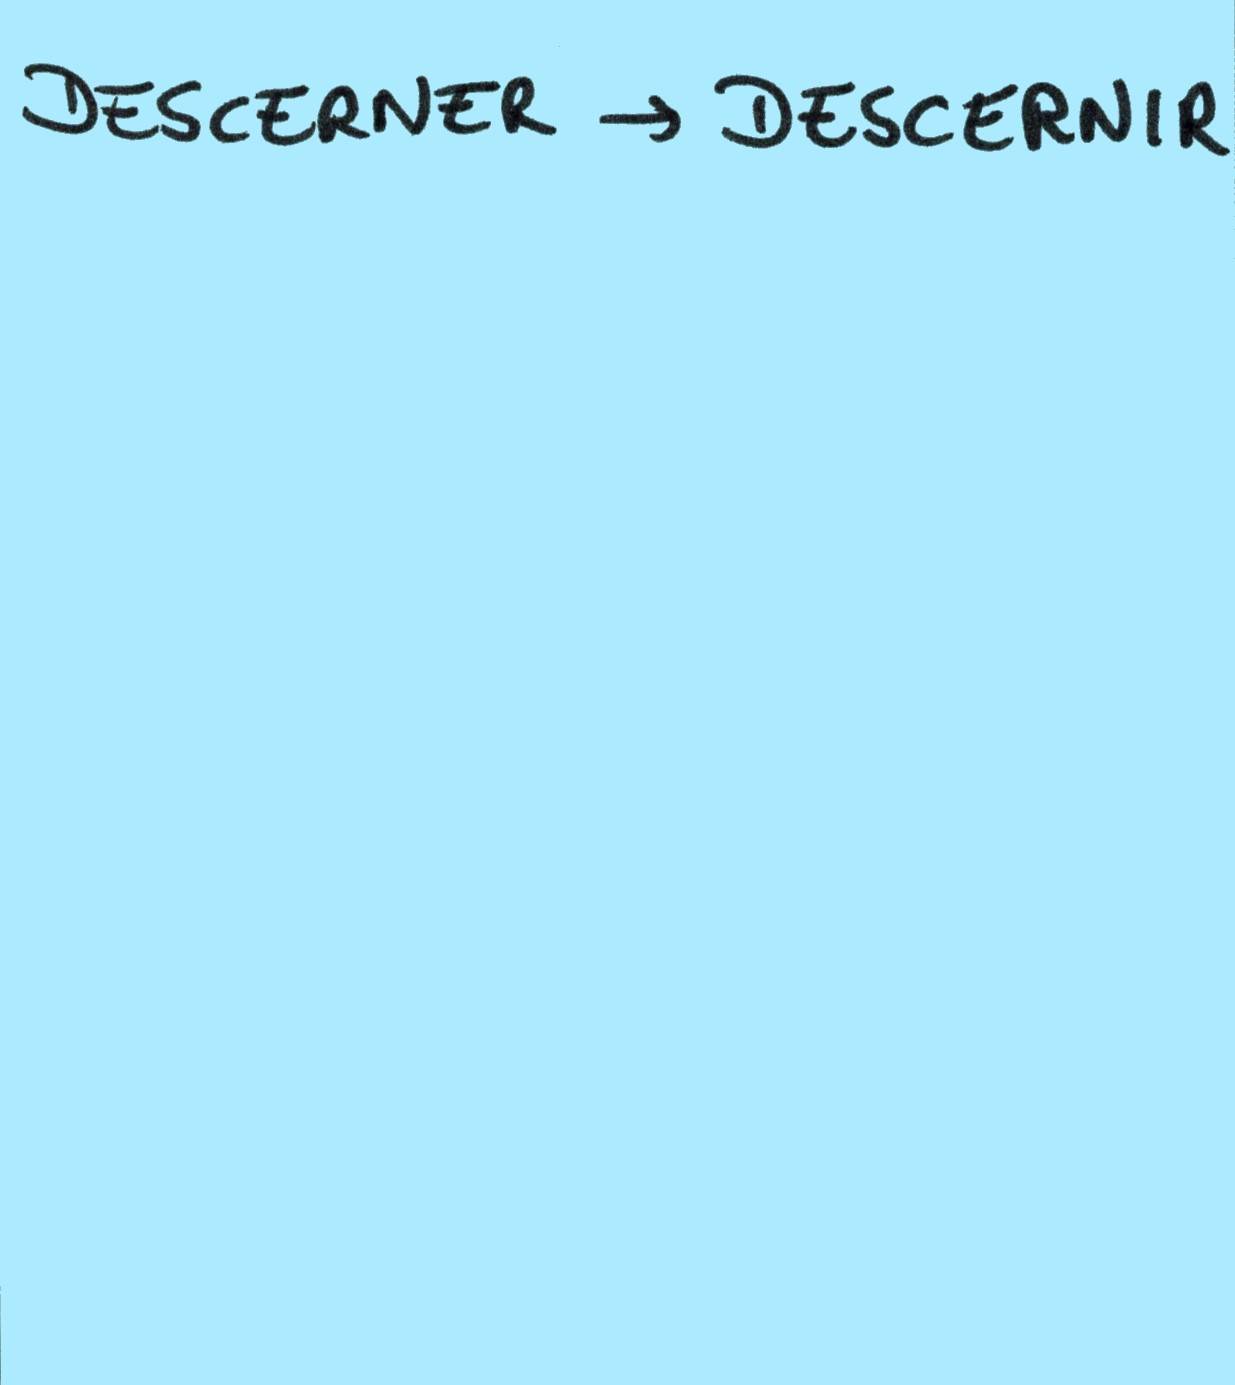 DESCERNER → DESCERNIR